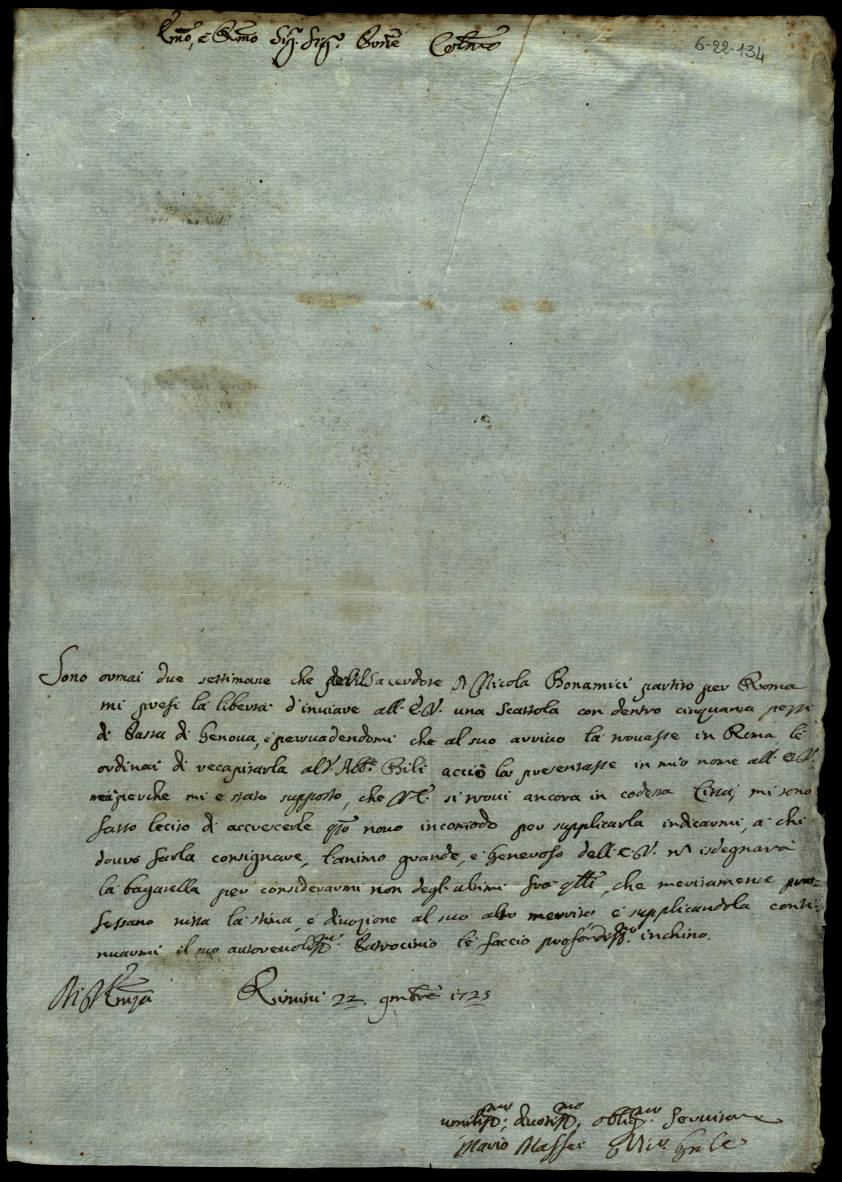 Emo, e Rmo Sig. Sig. Prone Colmo
6-22-134
Sono ormai due settimane che pel Sacerdote D Nicola Bonamici partito per Roma
mi presi la libertà d'inviare all'E.V. una scattola con dentro cinquanta pezzi
di Pasta di Genova, e persuadendomi che al suo arrivo la trovasse in Roma, le
ordinai di recapitarla al S. Abb.e Bili acciò la presentasse in mio nome all'E.V.
perche mi è stato supposto, che V.E. si trovi ancora in codesta Città, mi sono
fatto lecito di accrescerle qto novo incomodo per supplicarla indicarmi, a chi
dovrò farla consignare, l'animo grande, e benevoso dell'E.V. nn isdegnarà
la bagatella per considerarmi non degl'ultimi frà qlli, che meritamente pro-
fessano tutta la stima, e divozione al suo alto merito e supplicandola conti-
nuarmi il suo autorevoliss.mo Patrocinio le faccio profondiss.mo inchino.
Di V. Emza Rimini 22 9mbre 1725
umiliss.mo, divotiss.mo, obblig.mo Servitore
Mario Maffei